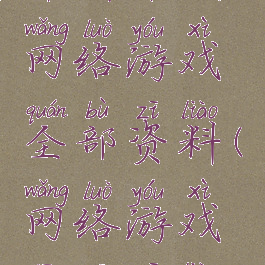 wǎng luò yóu xì
网络游戏
quán bù zī liào
全部资料(
wǎng luò yóu xì
网络游戏